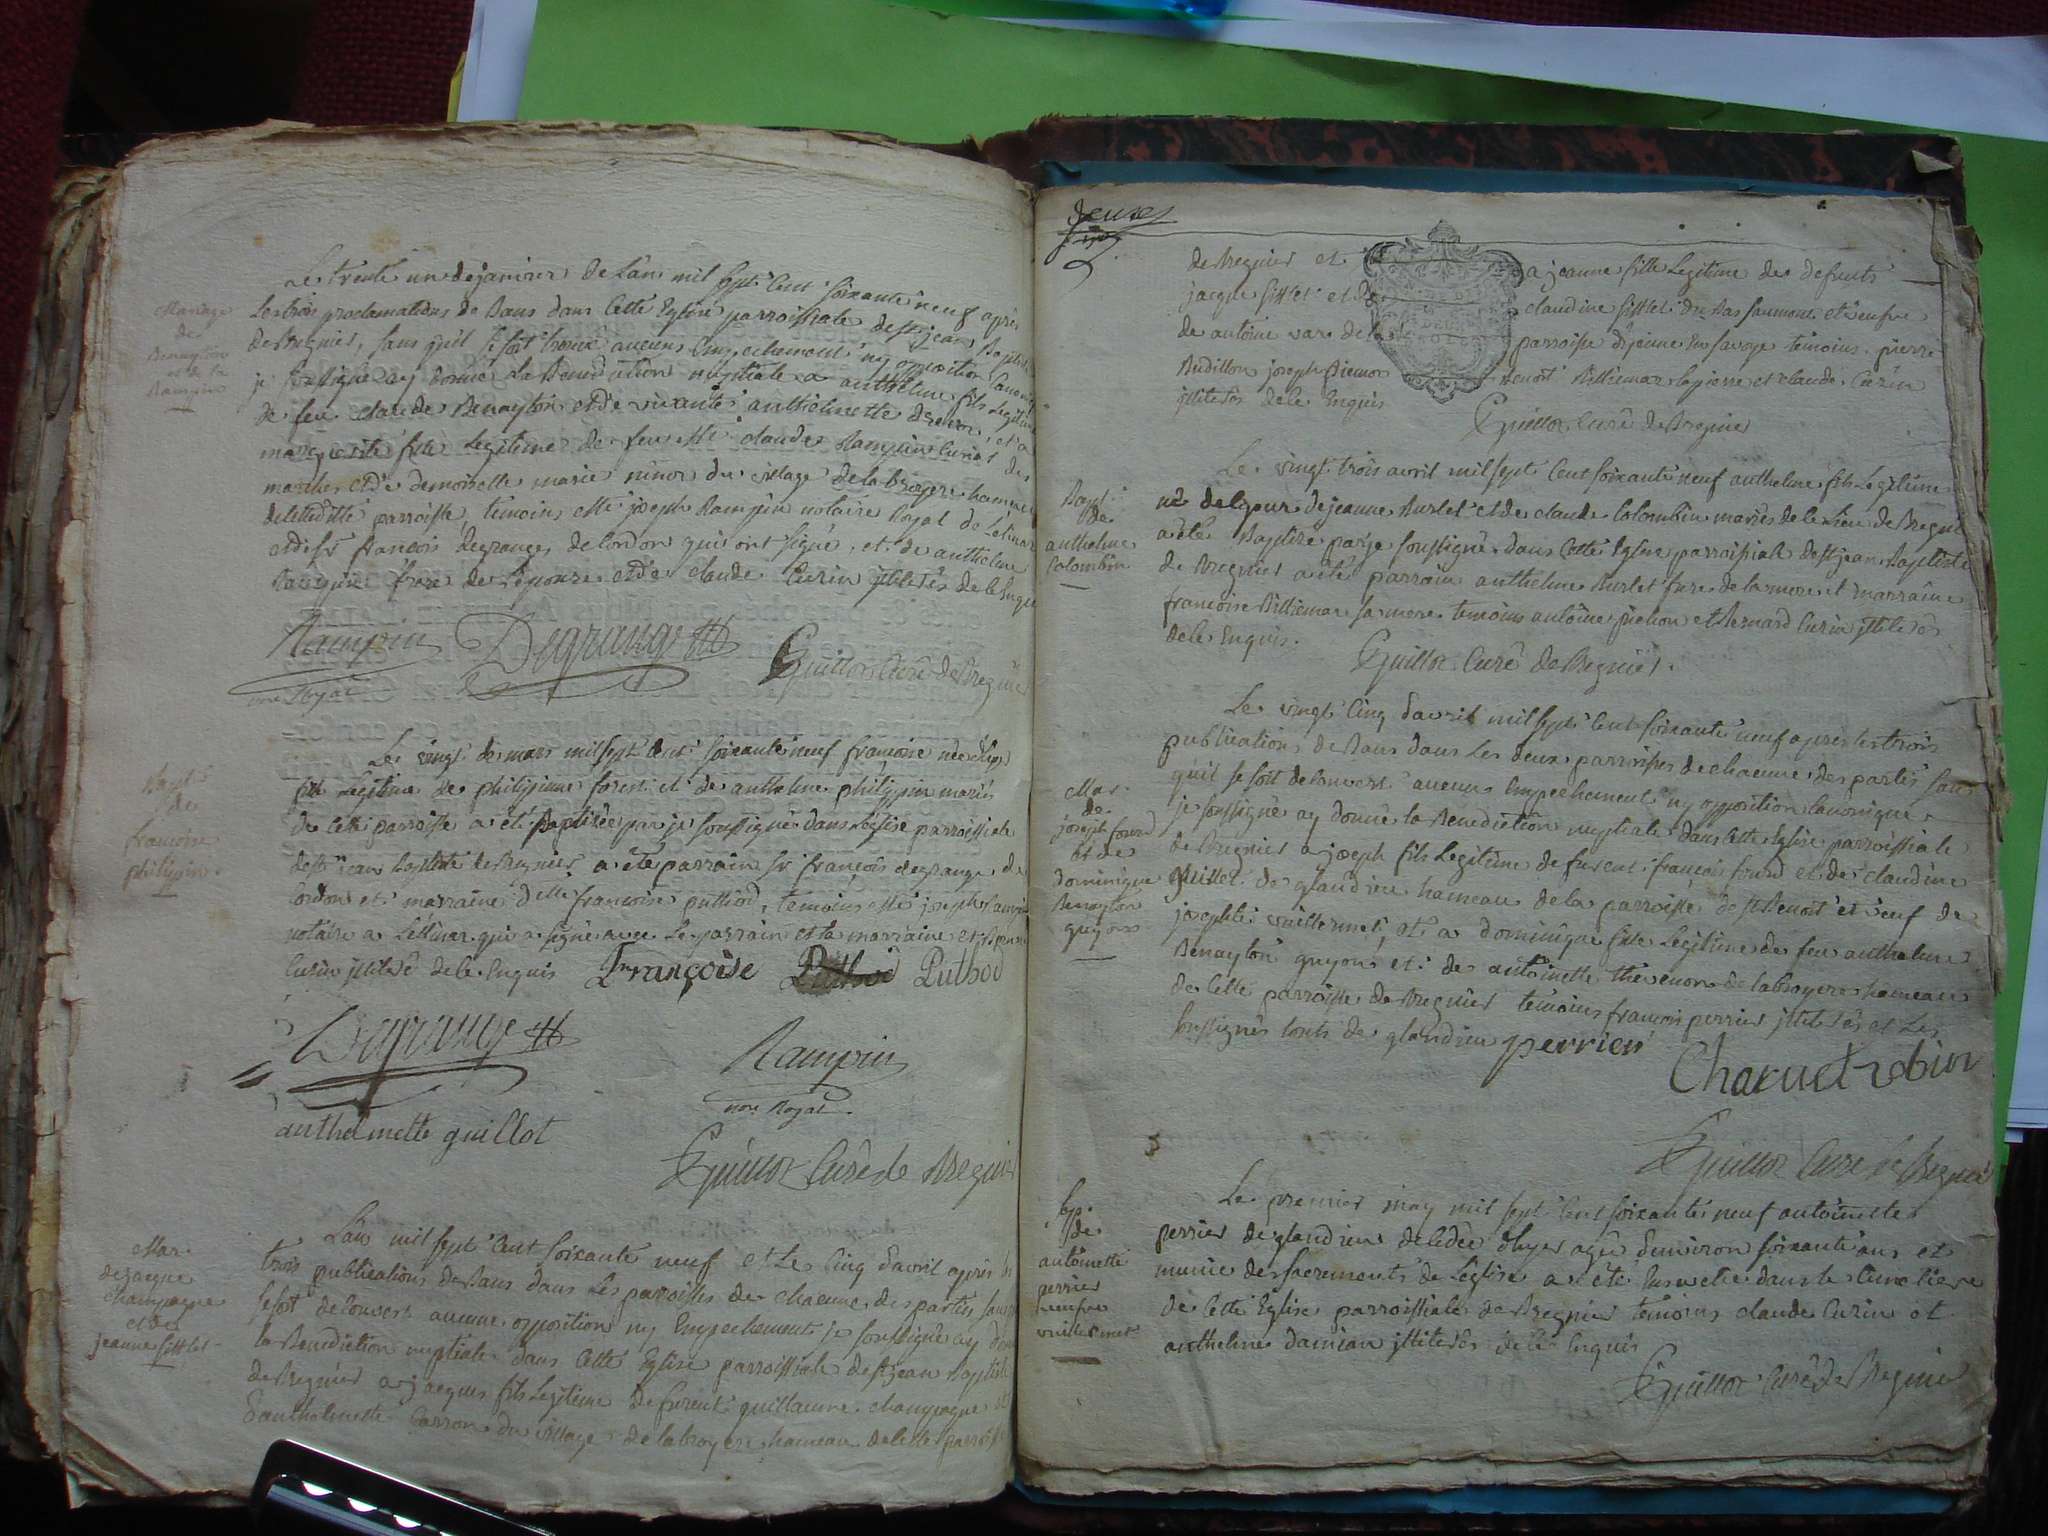 Mariage
de
Benayton
et de la
Rampin
Le trente un de janvier de l'an mil sept cent soixante neuf après
les trois proclamations de bans dans cette Eglise parroissiale de st jean Baptiste
de Bregnier, sans qu'il se soit trouvé aucuns Empechement ny opposition canonique
je soussigné ay donné la Benediction nuptiale a anthelme fils legitime
de feu claude Benayton et de vivante anthelmette et a
marguerite fille legitime de feu Mre claude Rampin curial des
marches et de demoiselle marie ninor du village de la broyere hameau
de cette ditte parroisse, temoins Mre joseph Rampin notaire Royal de
et de sr francois degranges de lordon qui ont signé, et de anthelme
Rampin frere de l'epouse et de claude Curin illiterés de ce Enquis
Rampin Degrange
nore Royal
Guillot Curé de Bregnier
Bapt.
de
francoise
philippin.
Le vingt de mars mil sept cent soixante neuf francoise née
fille legitime de philippine forest et de anthelme philippin mariés
de cette parroisse a eté Baptisée par je soussigné dans l'église parroissiale
de st jean baptiste de Bregnier, a été parrain sr francois degrange de
lordon et marraine delle francoise puthod, temoins Mre joseph Rampin
notaire a qui a signé avec le parrain et la marraine et
Curin illiteré de ce Enquis Françoise Puthod
Degrange Rampin
nore Royal.
anthelmette guillot
Guillot Curé de Bregnier
Mar.
de jacque
champagne
et de
jeanne sifflet
L'an mil sept cent soixante neuf et le cinq d'avril après les
trois publications de Bans dans les parroisses de chacune des parties sans
se soit decouvert aucune opposition ny Empechement je soussigné ay donné
la Benediction nuptiale dans cette Eglise parroissiale de st jean Baptiste
de Bregnier a jacques fils legitime de furent guillaume champagne et
d'anthelmette Carron du village de la broyere hameau de cette parroisse
deuxe
de Bregnier et a jeanne fille legitime des defunts
jacque sifflet et de claudine sifflet du Bas saumont et veufve
de antoine var de la parroisse d'ejeune En savoye temoins pierre
Budillon joseph benoit Billiemar lapierre et claude Curin
illiterés de ce Enquis
Guillot Curé de Bregnier
Bapt.
de
anthelme
Colombin
Le vingt trois avril mil sept cent soixante neuf anthelme fils legitime
né de ce jour de jeanne Burlet et de claude Colombin mariés de ce lieu de Bregnier
a été Baptisé par je soussigné dans cette Eglise parroissiale de st jean Baptiste
de Bregnier a été parrain anthelme Burlet frere de la mere et marraine
francoise Billiemar sa mere. temoins antoine pichon et Bernard Curin illiterés
de ce Enquis.
Guillot Curé de Bregnier.
Mar.
de
joseph fourd
et de
dominique
Benayton
guyon
Le vingt cinq d'avril mil sept cent soixante neuf après les trois
publications de Bans dans les deux parroisses de chacune des parties sans
qu'il se soit decouvert aucuns Empechement ny opposition canonique
je soussigné ay donné la Benediction nuptiale dans cette Eglise parroissiale
de Bregnier a joseph fils legitime de furent francois fourd et de claudine
de glandieu hameau de la parroisse de st Benoit et veuf de
josephte vuillermet, et a dominique fille legitime de feu anthelme
Benayton guyon et de antoinette thevenon de la broyere hameau
de cette parroisse de Bregnier temoins francois perrier illiterés et les
soussignés touts de glandieu perrier
Charvet robin
Guillot Curé de Bregnier
Sep.
de
antoinette
perrier
veufve
vuillermet
Le premier may mil sept cent soixante neuf antoinette
perrier de glandieu decedée d'hyer agée d'environ soixante ans et
munie des sacrements de l'eglise a été Ensevelie dans le Cimetiere
de cette Eglise parroissiale de Bregnier temoins claude Curin et
anthelme damian illiterés de ce Enquis
Guillot Curé de Bregnier